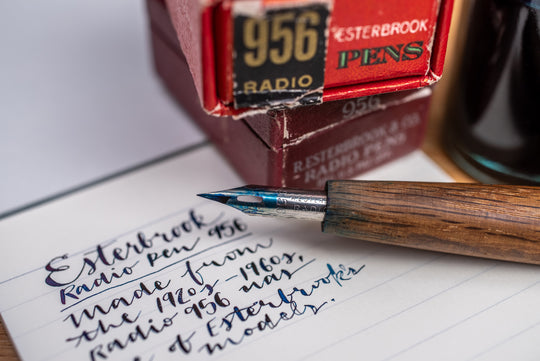 956
RADIO
ESTERBROOK
PENS
956
R.ESTERBROOK & CO.
RADIO PENS
Esterbrook
Radio Pen 956
Made from
the 1920s-1960s,
Radio 956 was
of Esterbrook's
models.